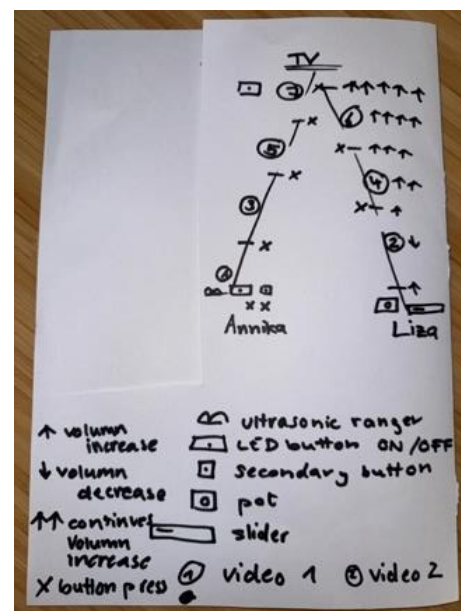 TV
⑦ ↑↑↑↑↑
⑥ ↑↑↑↑
⑤ x
x ↑↑↑
x
③ ④ ↑↑
x ↑
x ② ↓
↑
x x
Annika Liza
↑ volumn increase
↓ volumn decrease
↑↑ continues volumn increase
X button press
ultrasonic ranger
LED button ON/OFF
secondary button
pot
slider
① video 1 ② video 2